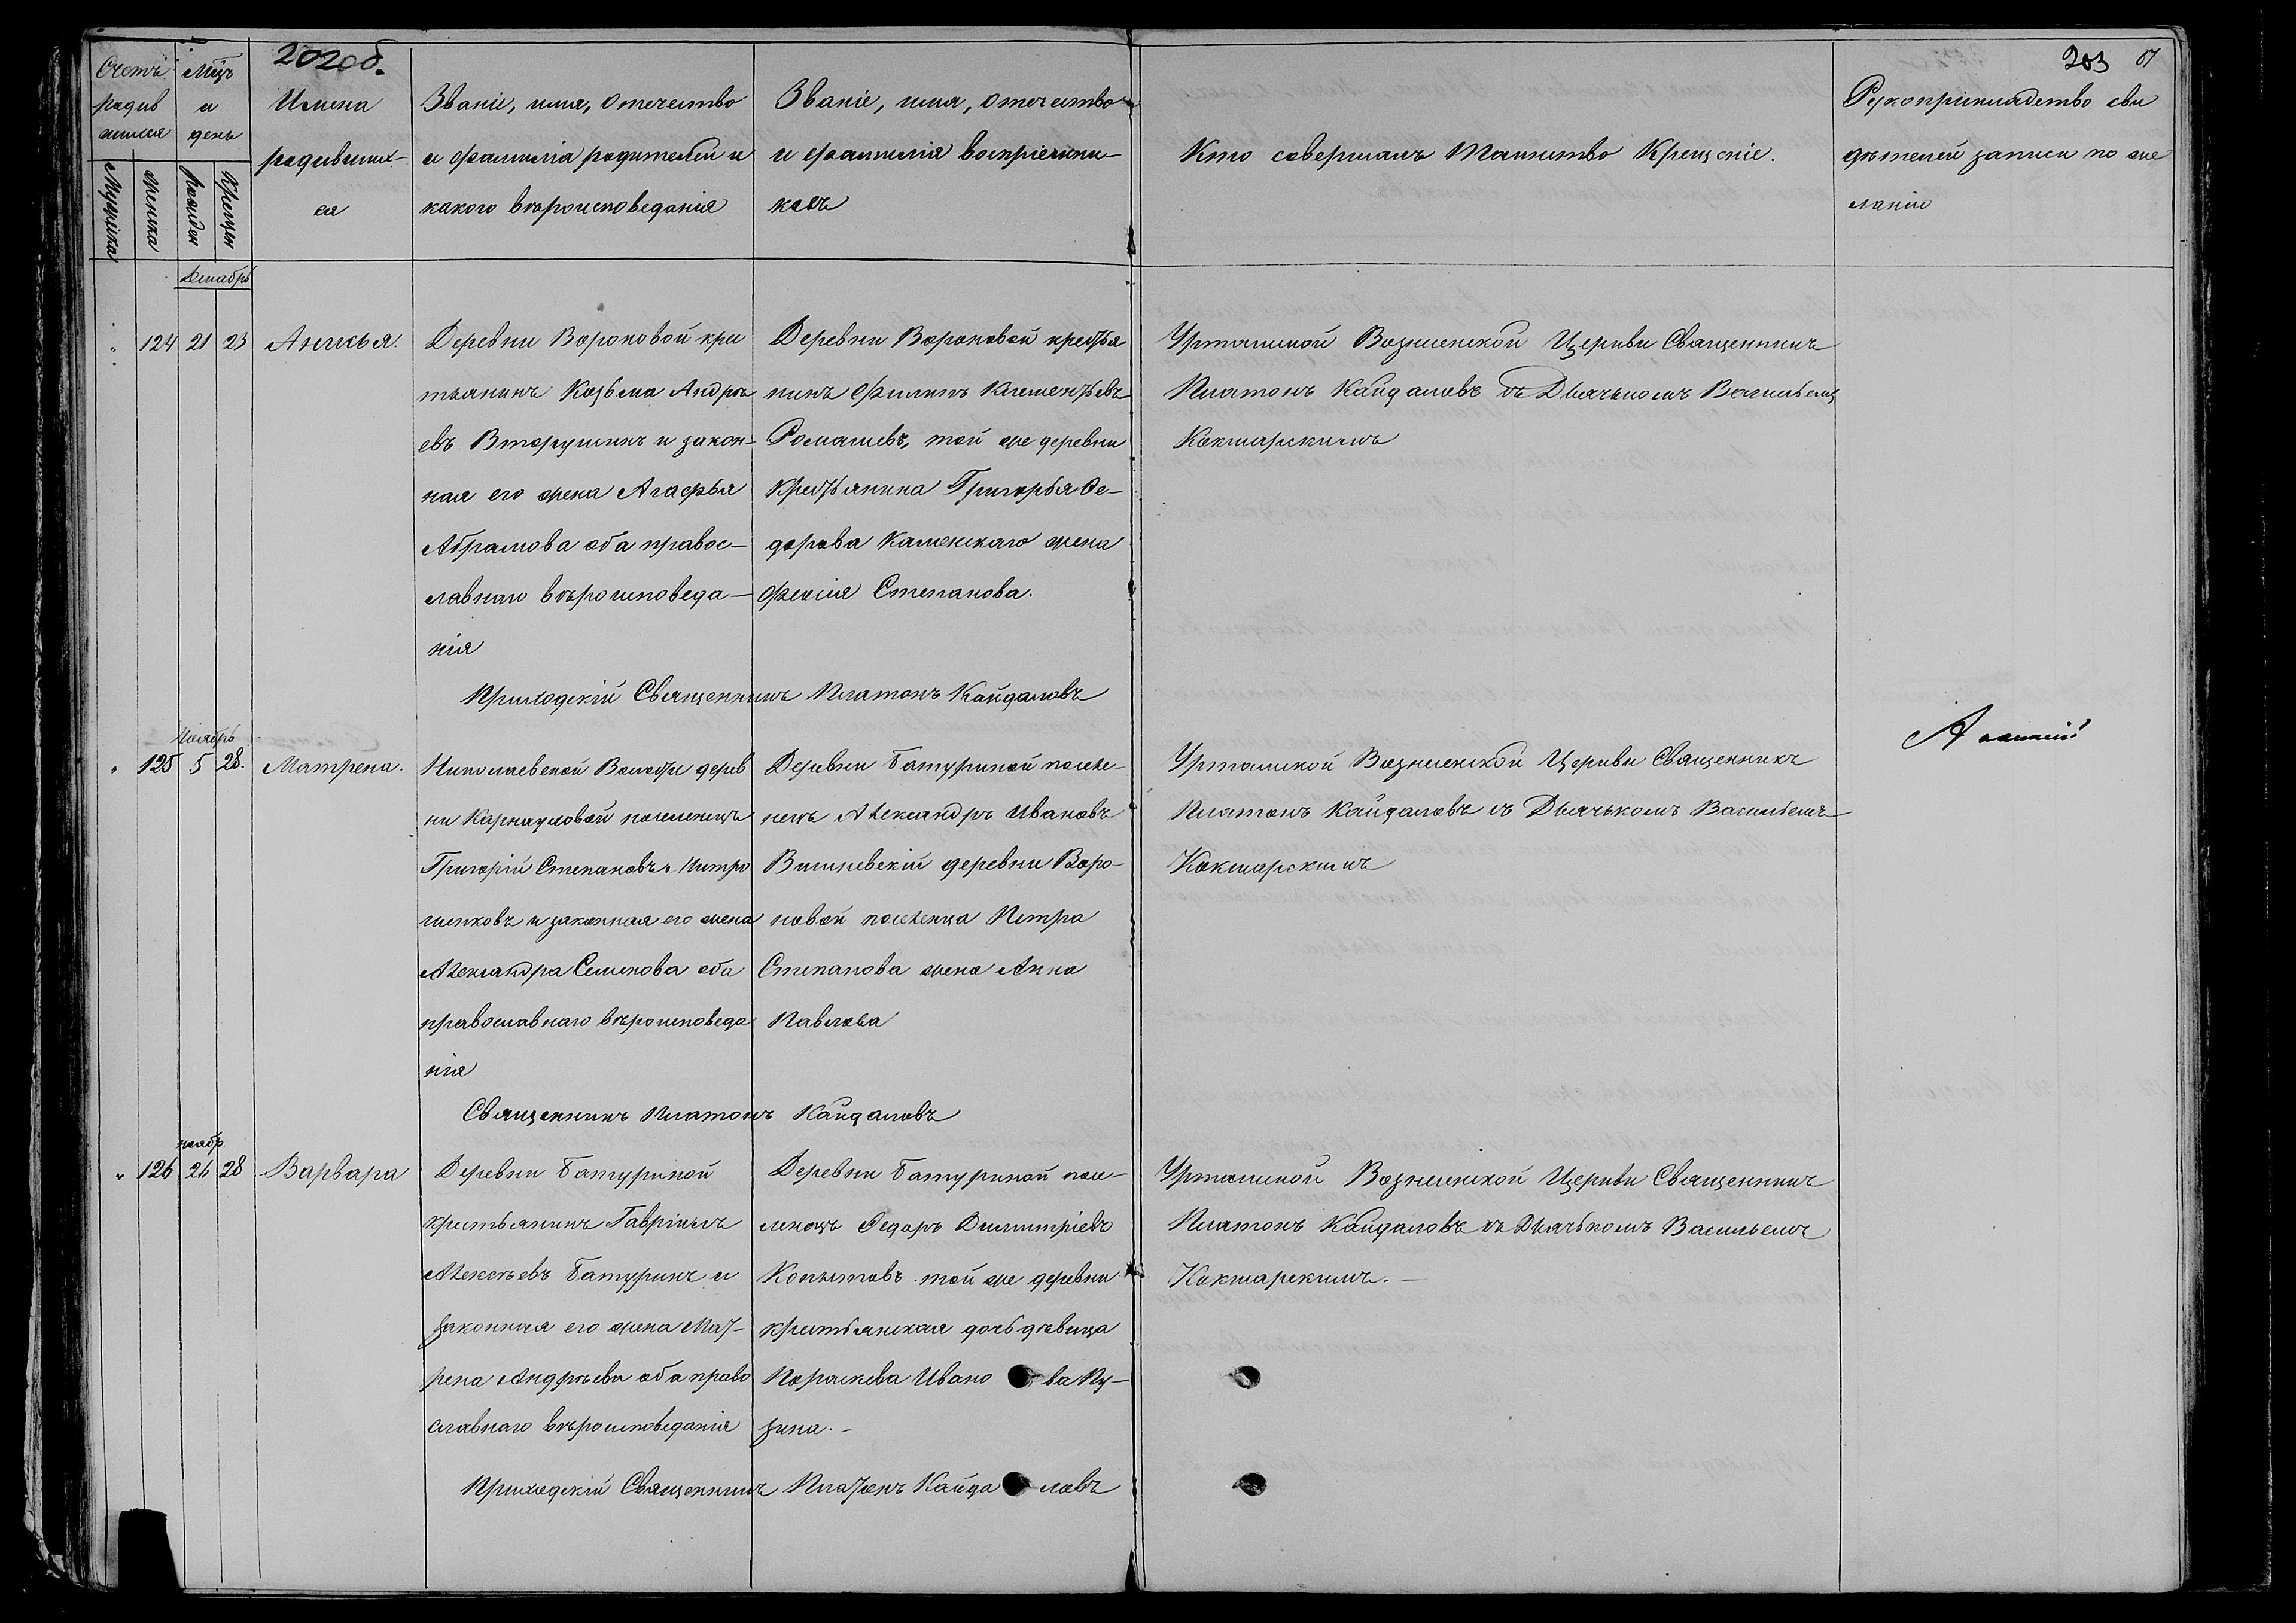 202об.
203
Счетъ родив шихся
Мужеска
Женска
Мцъ и день
Рожден
Крещен
Имена
родивших-
ся
Званіе, имя, отечество
и фамилія родителей и
какого вѣроисповеданія
Званіе, имя, отечество
и фамилія воспріемни-
ковъ
Кто совершалъ Таинство Крещеніе.
Рукоприкладство сви
дѣтелей записи по же
ланію
Декабрь
124 21 23 Анисья.
Деревни Вороновой кре
стьянинъ Козьма Андрѣ
евъ Вторушинъ и закон-
ная его жена Агафья
Абрамова оба правос-
лавнаго вѣроисповеда-
нія
Деревни Вороновой крестья
нинъ Филипъ Клементьевъ
Ромашевъ, той же деревни
крестьянина Григорья Фе-
дорова Каменскаго жена
Фекла Степанова.
Уртамской Вознесенской Церкви Священникъ
Платонъ Кайдаловъ съ Дьячькомъ Васильемъ
Кокшарскимъ
Приходскій Священникъ Платонъ Кайдаловъ
Ноябрь
125 5 28. Матрена.
Николаевской Волости дерев
ни Карнауховой поселенецъ
Григорій Степановъ Митро
шенковъ и законная его жена
Александра Семенова оба
православнаго вѣроисповеда
нія
Деревни Батуриной поселе-
нецъ Александръ Ивановъ
Вишневскій деревни Воро-
новой поселенца Петра
Степанова жена Анна
Павлова
Уртамской Вознесенской Церкви Священникъ
Платонъ Кайдаловъ съ Дьячькомъ Васильемъ
Кокшарскимъ
Священникъ Платонъ Кайдаловъ
ноябр
126 26 28 Варвара
Деревни Батуриной
крестьянинъ Гавріилъ
Алексѣевъ Батуринъ и
законная его жена Мат-
рена Андрѣева оба право
славнаго вѣроисповеданія
Деревни Батуриной посе-
ленецъ Федоръ Димитріевъ
Копытовъ той же деревни
крестьянская дочь дѣвица
Параскева Иванова Пу-
зина.-
Уртамской Вознесенской Церкви Священникъ
Платонъ Кайдаловъ съ Дьячькомъ Васильемъ
Кокшарскимъ.-
Приходскій Священникъ Платонъ Кайдаловъ